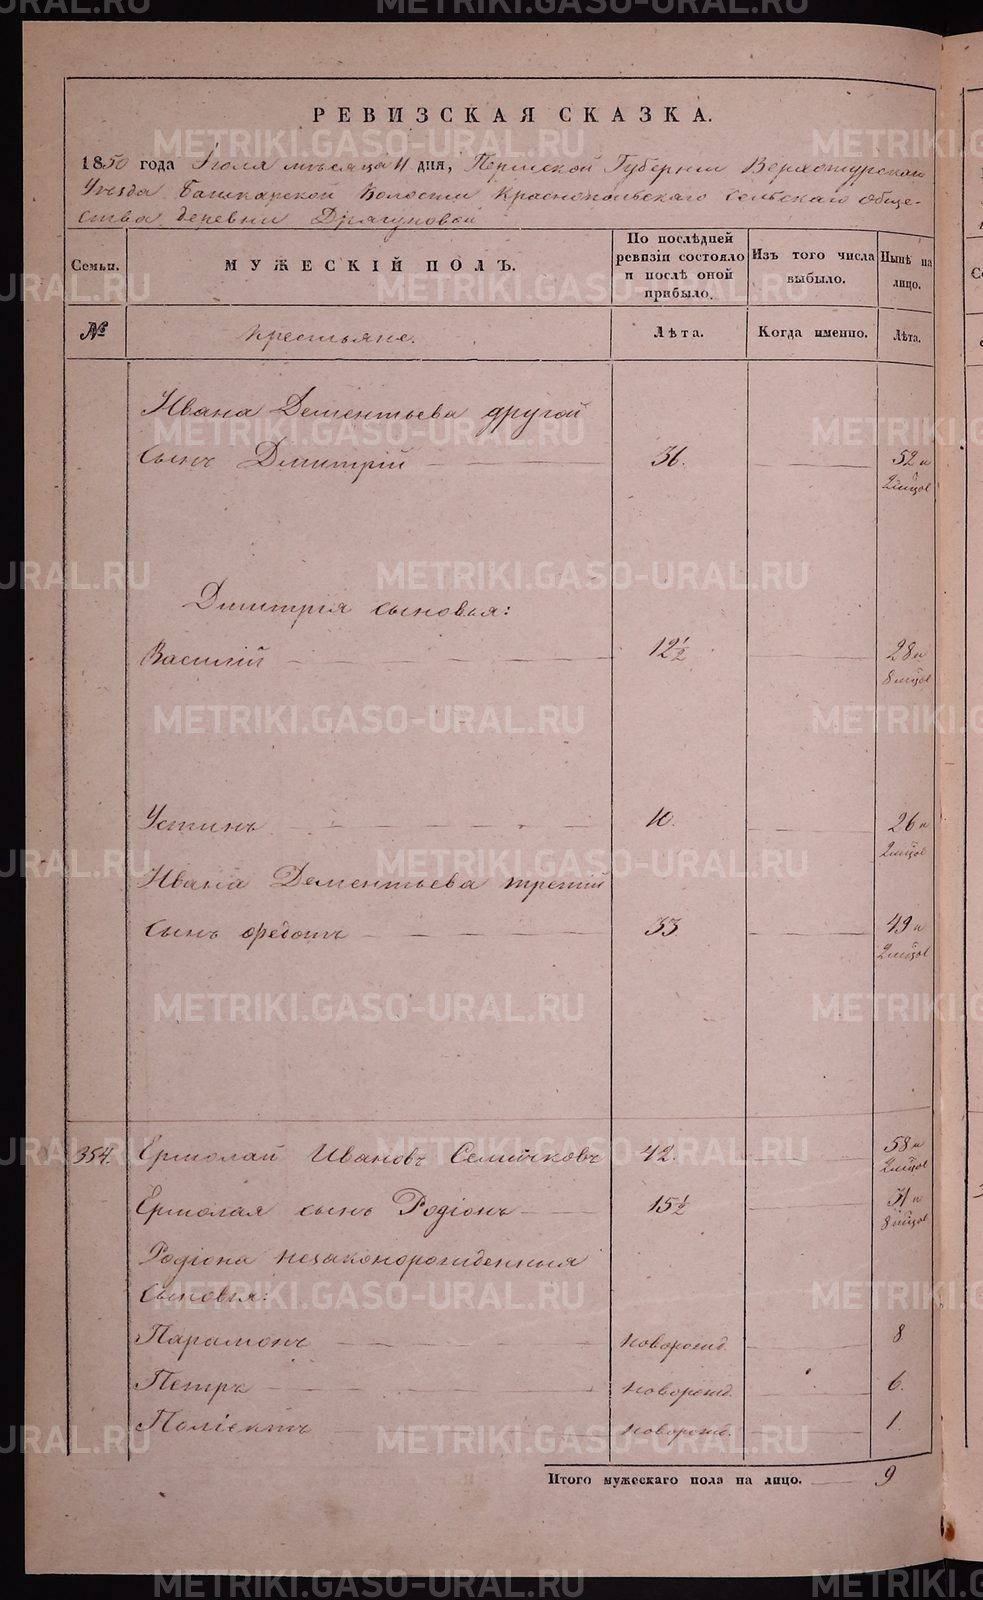 РЕВИЗСКАЯ СКАЗКА.
1850 года Іюля мѣсяца 11 дня, Пермской Губерніи Верхотурскаго
Уѣзда Башкарской Волости Краснопольскаго Сельскаго Обще-
ства деревни Драгуновой
Семьи.
МУЖЕСКІЙ ПОЛЪ.
По послѣдней ревизіи состояло и послѣ оной прибыло.
Изъ того числа выбыло.
Нынѣ на лицо.
№
Крестьяне.
Лѣта.
Когда именно.
Лѣта.
Ивана Дементьева другой
сынъ Димитрій 36. 52 и
2 мѣсов
Димитрія сыновья:
Василій 12½ 28 и
8 мѣсов
Устинъ 10. 26 и
2 мѣсов
Ивана Дементьева третій
сынъ Федотъ 33 49 и
2 мѣсов
354. Ермолай Ивановъ Семячковъ 42. 58 и
2 мѣсов
Ермолая сынъ Родіонъ 15½ 31 и
8 мѣсов
Родіона незаконорожденныя
сыновья:
Парамонъ новорожд. 8
Петръ новорожд. 6.
Поліектъ новорожд. 1.
Итого мужескаго пола на лицо. 9
METRIKI.GASO-URAL.RU